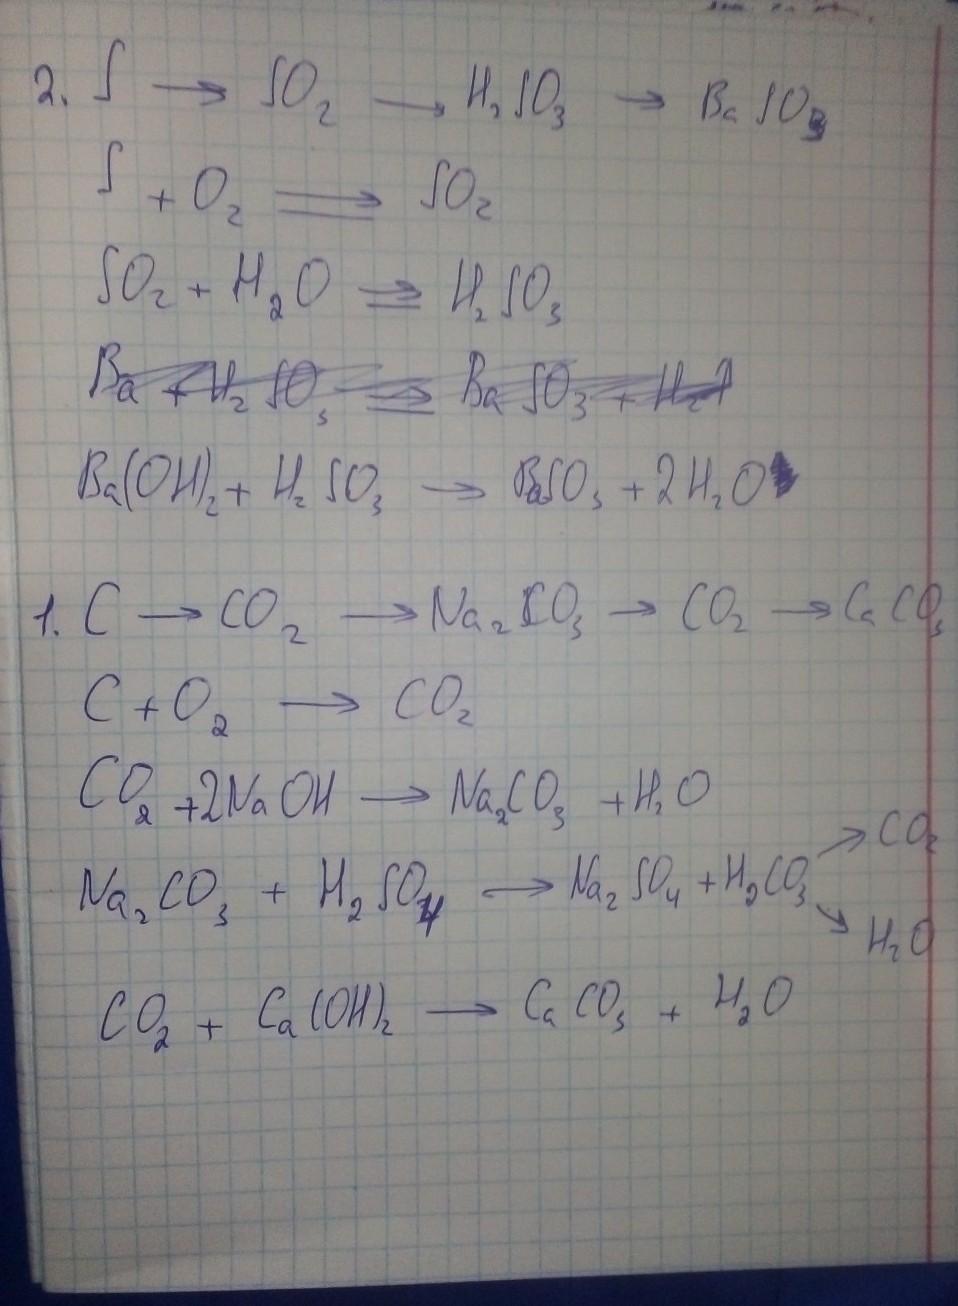 2. S → SO₂ → H₂SO₃ → BaSO₃
S + O₂ → SO₂
SO₂ + H₂O → H₂SO₃
Ba + H₂SO₃ → BaSO₃ + H₂↑
Ba(OH)₂ + H₂SO₃ → BaSO₃ + 2H₂O
1. C → CO₂ → Na₂CO₃ → CO₂ → CaCO₃
C + O₂ → CO₂
CO₂ + 2NaOH → Na₂CO₃ + H₂O
Na₂CO₃ + H₂SO₄ → Na₂SO₄ + H₂CO₃ ↗ CO₂
↘ H₂O
CO₂ + Ca(OH)₂ → CaCO₃ + H₂O